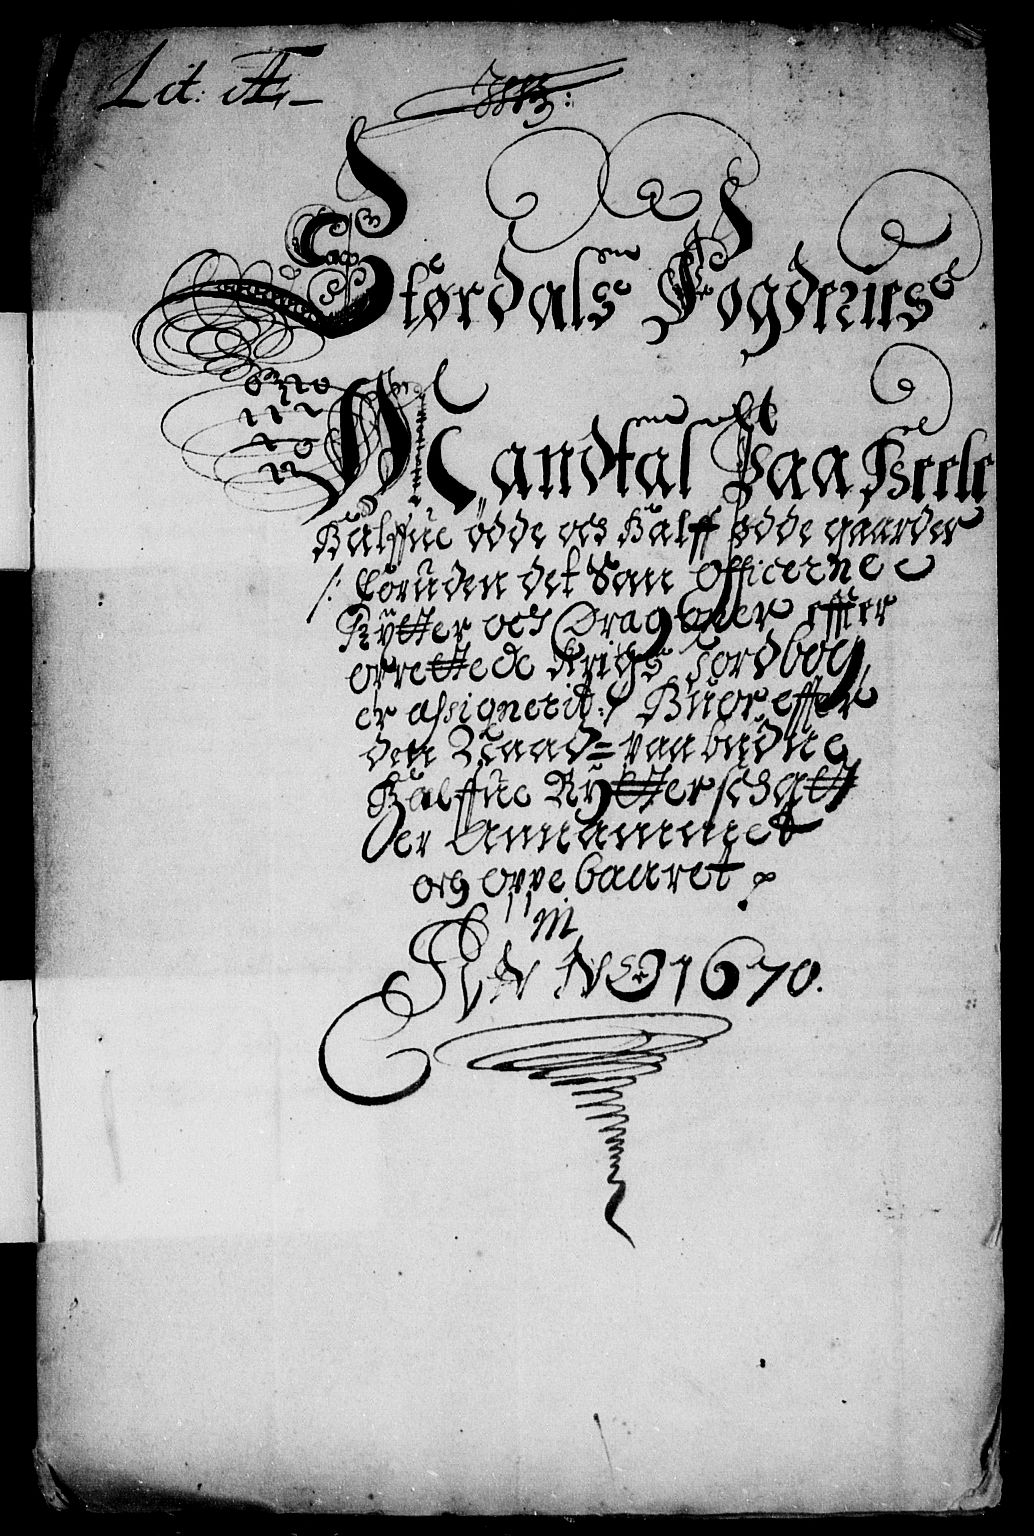 Lit: A
Størdals Fogderies
Mandtal Paa Heele
Halffue ødde och Halff ødde gaarder
/: Foruden det Som Officerne
Rytter och Dragoner effter
orrettede Krigs Jordbog
er assignerit :/ Huor effter
den Naad= paabudne
Halffue Rytterschatt
er Annammet
och oppebaaret
ANNO 1670.